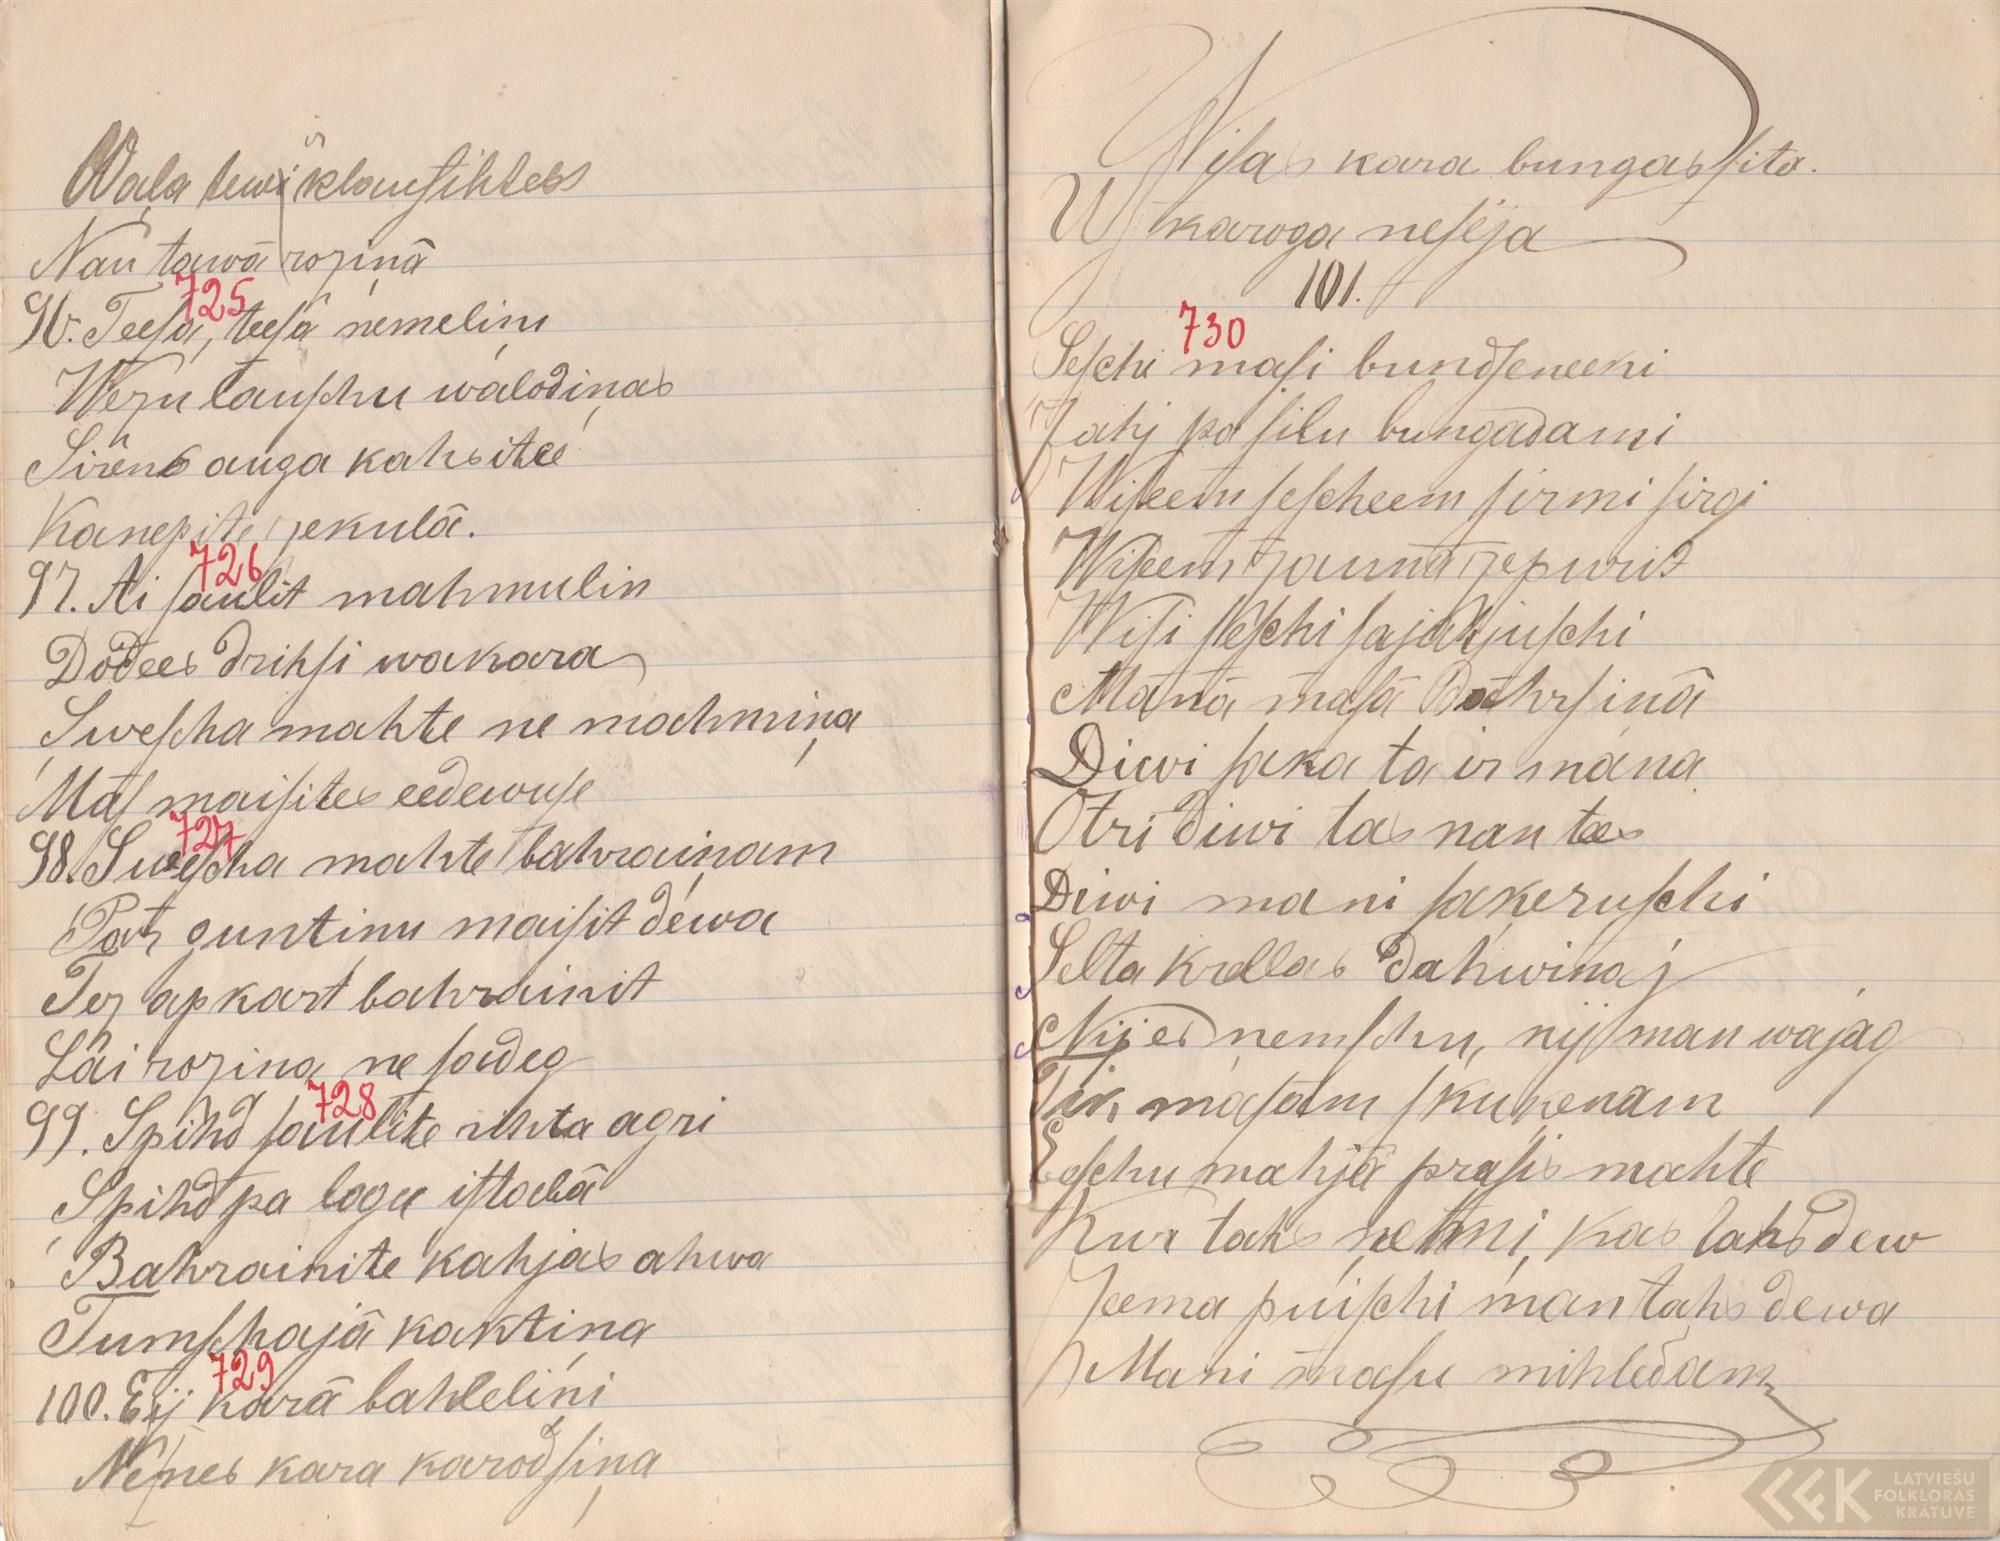 Waļa tewi ir klausihtees
Nau tawā rozinā
725
96. Teesa, teesa ņemeliņi
Wezu lauschu walodiņas
Sirēns auga kahsitee
Kanepite zekulā.
726
97. Ai saulit mahmulin
Dodees drihsi wakara
Swescha mahte ne mahmiņa
Mas maisites eedewuse
727
98. Swescha mahte bahrainam
Par guntiņu maisit dewa
Tez apkart bahrainit
Lai roziņa ne sadeg
728
99. Spihd saulite rihta agri
Spihd pa logu istabā
Bahrainite kahjas ahwa
Tumschajā kaktiņa
729
100. Eij karā bahleliņi
Neņnes kara karodsiņa
Wisas kara bungas sita.
U karoga nesēja
101.
730
Seschi masi bundseneeki
Jahj pa silu bungadami
Wiseem sescheem sirmi sirgi
Wiseem zauna zepurit
Wisi seschi sajahjuschi
Manā masā dahrsinā
Diwi saka ta ir mana
Otri diwi tas nau tees
Diwi mani sakeruschi
Selta krellas dahwinaj
Nij es nemschu, nij man wajag
Tik masam skukenam
Eeschu mahjā prasis mahte
Kur tahs ņehmi, kas tahs dew
Zeema puischi man tahs dewa
Mani masu mihledami
LATVIEŠU
FOLKLORAS
KRĀTUVE